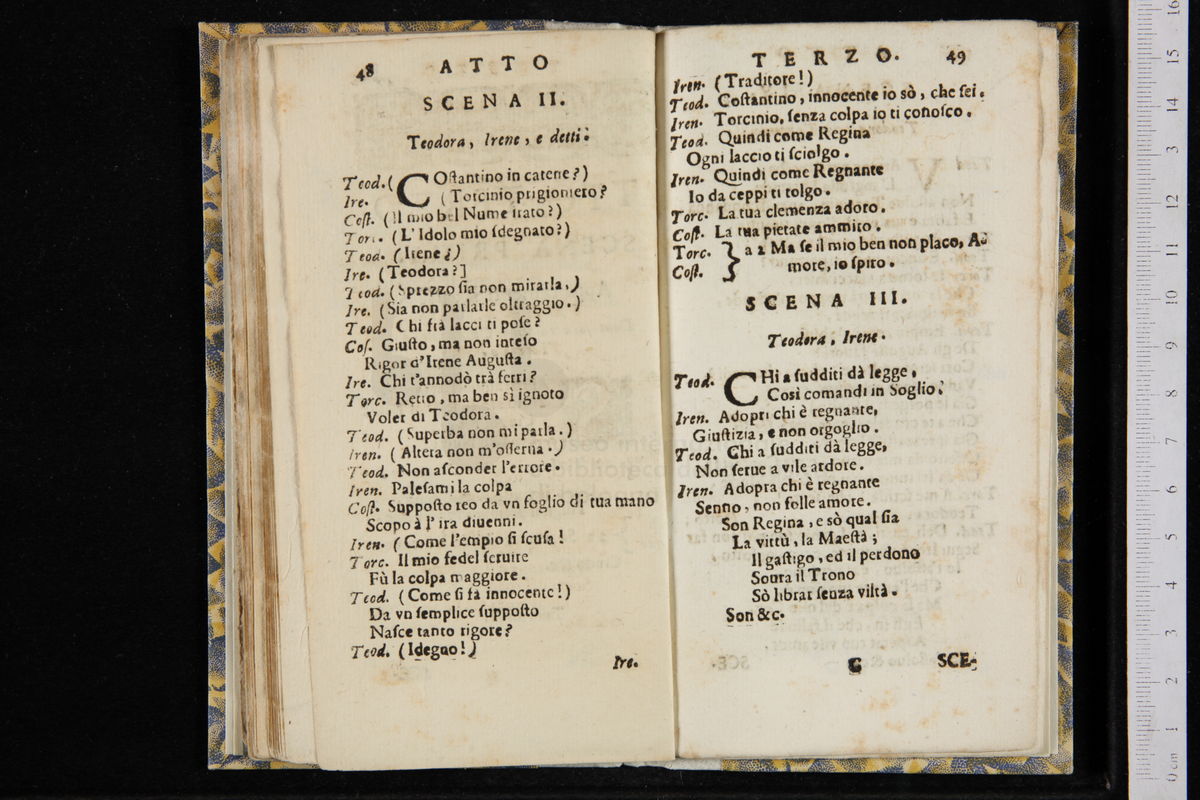 48 ATTO
SCENA II.
Teodora, Irene, e detti.
Teod. (COſtantino in catene?)
Ire. (Torcinio prigioniero?
Coſt. (Il mio bel Nume irato?)
Torc. (L'Idolo mio ſdegnato?)
Teod. (Irene?)
Ire. (Teodora?]
Teod. (Sprezzo ſia non mirarla.)
Ire. (Sia non parlarle oltraggio.)
Teod. Chi frà lacci ti poſe?
Coſ. Giuſto, ma non inteſo
Rigor d'Irene Auguſta.
Ire. Chi t'annodò trà ferri?
Torc. Retto, ma ben sì ignoto
Voler di Teodora.
Teod. (Superba non mi parla.)
Iren. (Altera non m'oſſerua.)
Teod. Non aſconder l'errore.
Iren. Paleſami la colpa
Coſt. Suppoſto reo da vn foglio di tua mano
Scopo à l'ira diuenni.
Iren. (Come l'empio ſi ſcuſa!
Torc. Il mio fedel ſeruire
Fù la colpa maggiore.
Teod. (Come ſi fà innocente!)
Da vn ſemplice ſuppoſto
Naſce tanto rigore?
Teod. (Idegno!)
Ire.
TERZO. 49
Iren. (Traditore!)
Teod. Coſtantino, innocente io sò, che ſei.
Iren. Torcinio, ſenza colpa io ti conoſco.
Teod. Quindi come Regina
Ogni laccio ti ſciolgo.
Iren. Quindi come Regnante
Io da ceppi ti tolgo.
Torc. La tua clemenza adoro.
Coſt. La tua pietate ammiro.
Torc. } a 2 Ma ſe il mio ben non placo, A-
Coſt. } more, io ſpiro.
SCENA III.
Teodora, Irene.
Teod. CHi a ſudditi dà legge,
Così comandi in Soglio.
Iren. Adopri chi è regnante,
Giuſtizia, e non orgoglio.
Teod. Chi a ſudditi dà legge,
Non ſerue a vile ardore.
Iren. Adopra chi è regnante
Senno, non folle amore.
Son Regina, e sò qual ſia
La virtù, la Maeſtà;
Il gaſtigo, ed il perdono
Soura il Trono
Sò librar ſenza viltà.
Son &c.
G SCE-